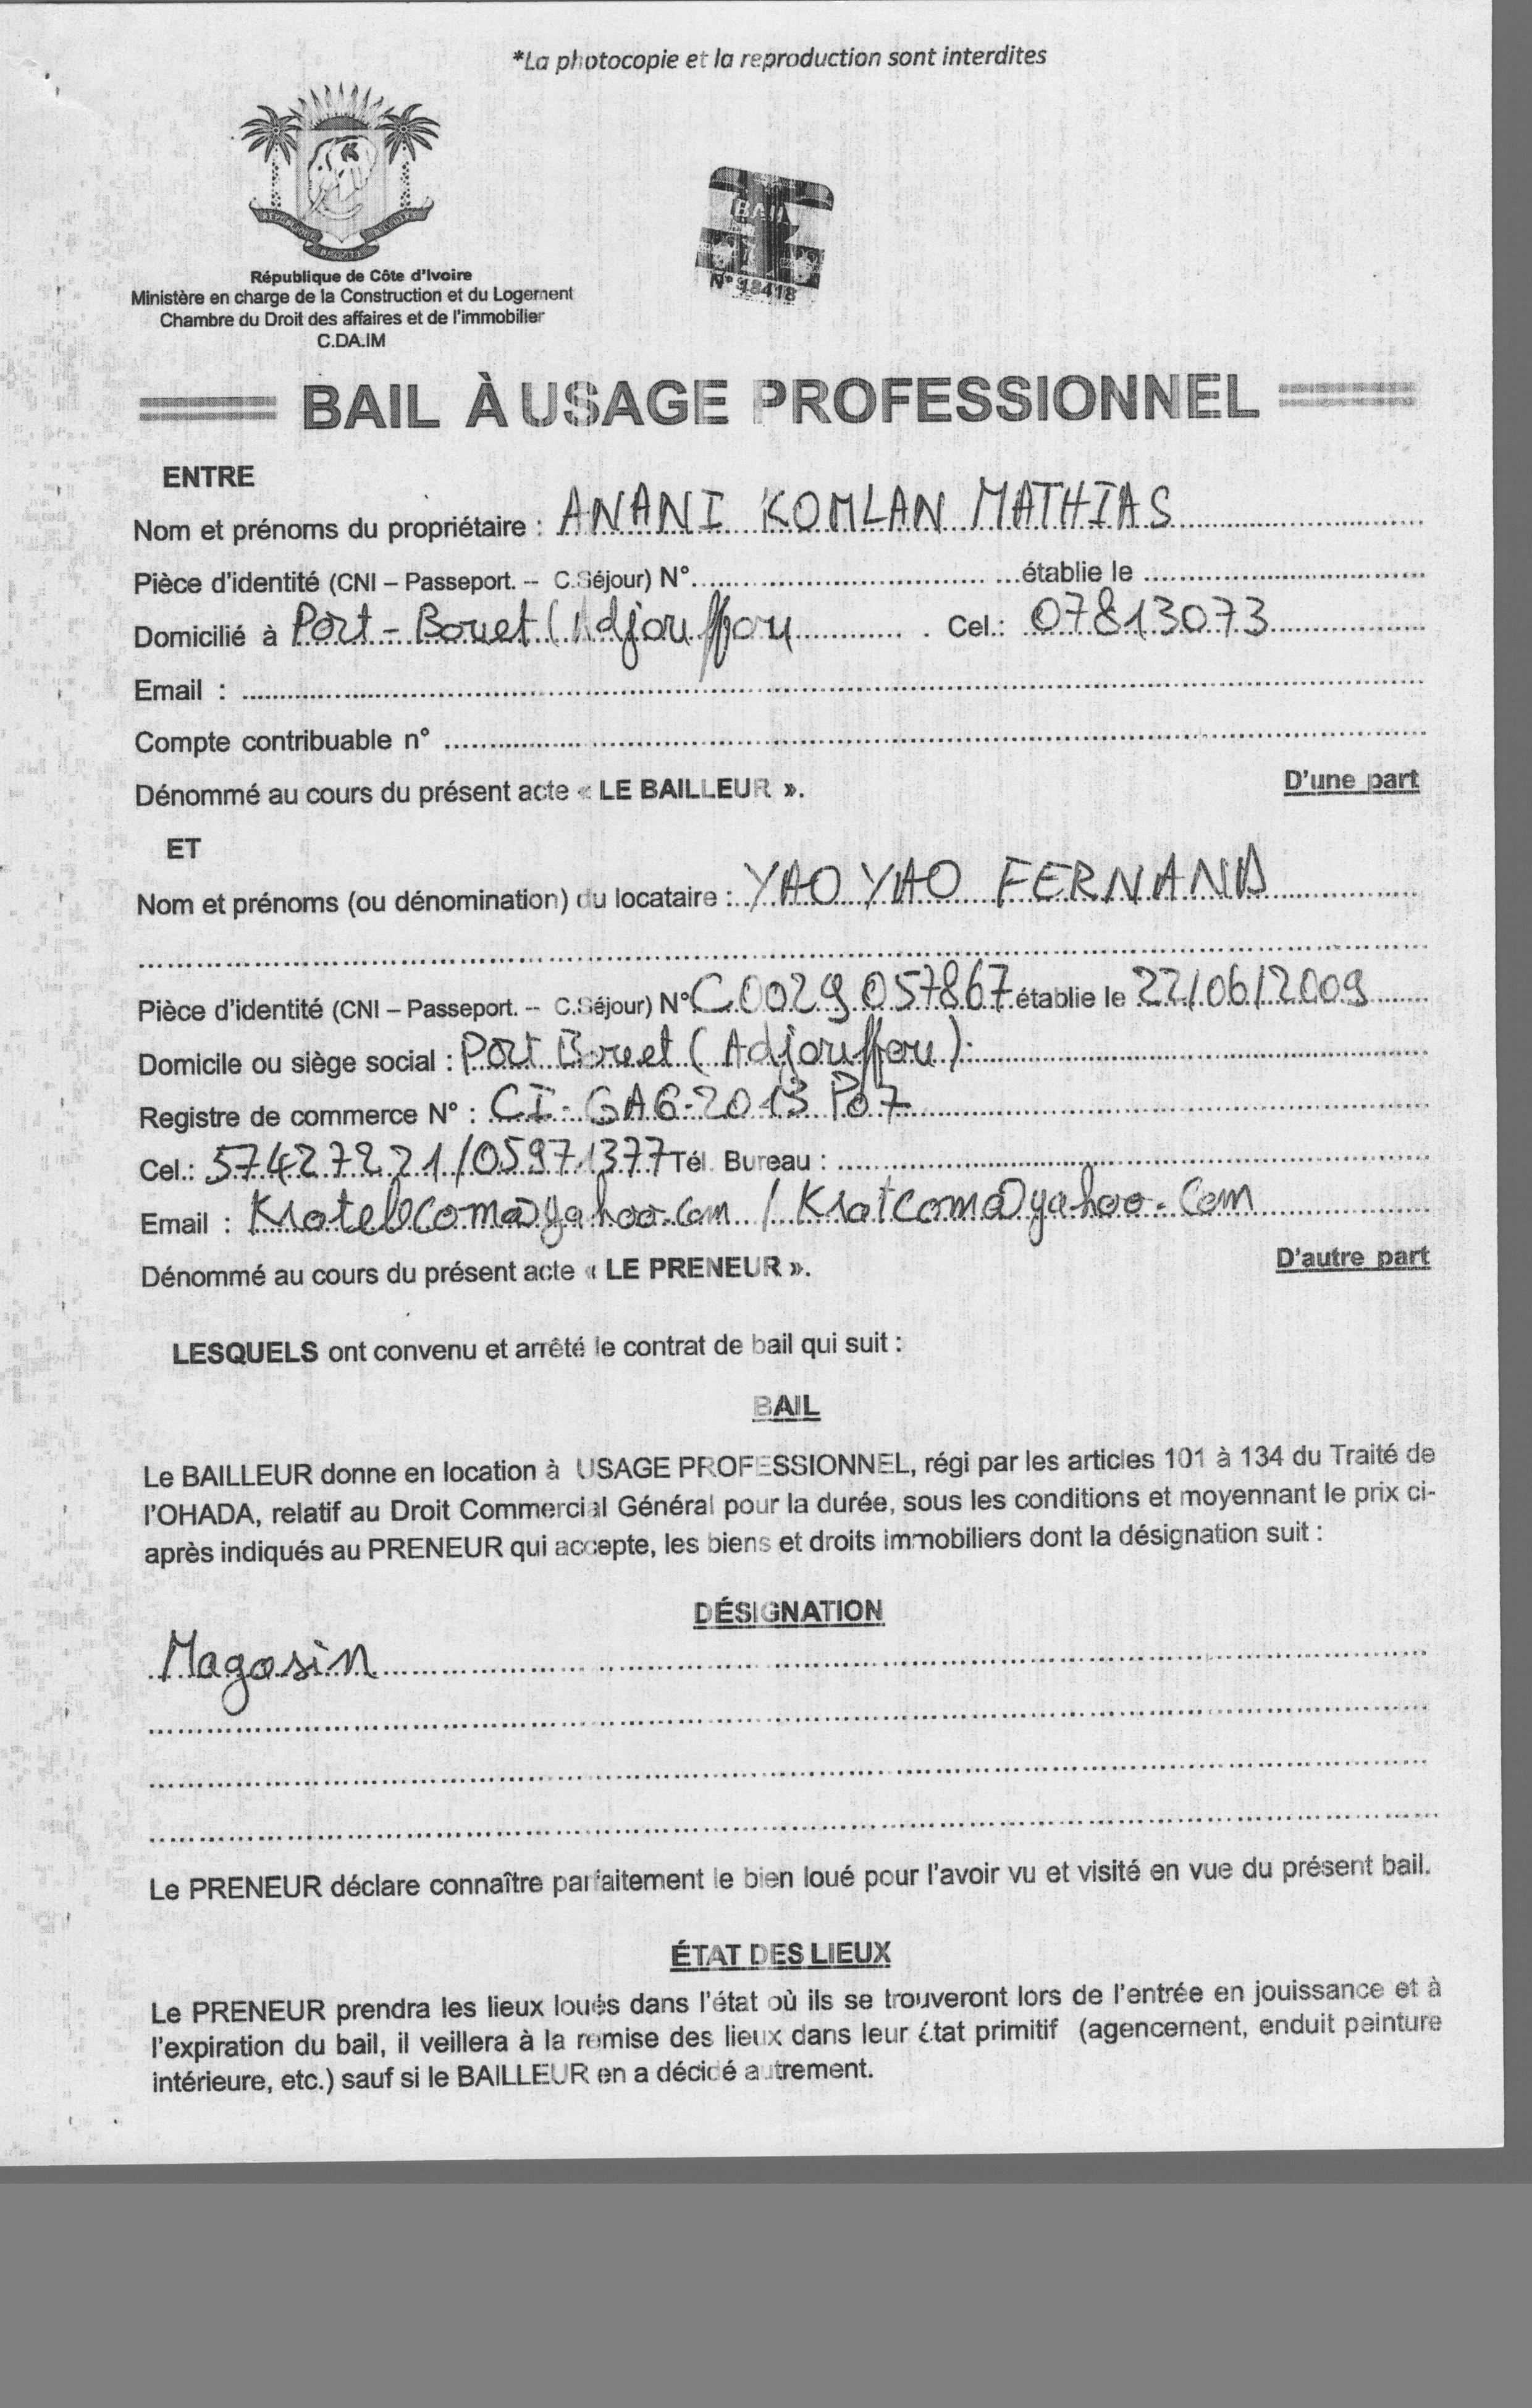 *La photocopie et la reproduction sont interdites
BAIL
République de Côte d'Ivoire
Ministère en charge de la Construction et du Logement
Chambre du Droit des affaires et de l'immobilier
C.DA.IM
BAIL À USAGE PROFESSIONNEL
ENTRE
Nom et prénoms du propriétaire : ANANI KOMLAN MATHIAS
Pièce d'identité (CNI – Passeport. – C.Séjour) N° établie le
Domicilié à Port-Bouet (Adjouffou Cel.: 07813073
Email :
Compte contribuable n°
Dénommé au cours du présent acte « LE BAILLEUR ». D'une part
ET
Nom et prénoms (ou dénomination) du locataire : YAO YAO FERNAND
Pièce d'identité (CNI – Passeport. – C.Séjour) N° C0029057867 établie le 22/06/2009
Domicile ou siège social : Port Bouet (Adjouffou)
Registre de commerce N° : CI-GA6-2013 P07
Cel.: 57427221/05971377 Tél. Bureau :
Email : / Kratcom@yahoo.com
Dénommé au cours du présent acte « LE PRENEUR ». D'autre part
LESQUELS ont convenu et arrêté le contrat de bail qui suit :
BAIL
Le BAILLEUR donne en location à USAGE PROFESSIONNEL, régi par les articles 101 à 134 du Traité de
l'OHADA, relatif au Droit Commercial Général pour la durée, sous les conditions et moyennant le prix ci-
après indiqués au PRENEUR qui accepte, les biens et droits immobiliers dont la désignation suit :
DÉSIGNATION
Magasin
Le PRENEUR déclare connaître parfaitement le bien loué pour l'avoir vu et visité en vue du présent bail.
ÉTAT DES LIEUX
Le PRENEUR prendra les lieux loués dans l'état où ils se trouveront lors de l'entrée en jouissance et à
l'expiration du bail, il veillera à la remise des lieux dans leur état primitif (agencement, enduit peinture
intérieure, etc.) sauf si le BAILLEUR en a décidé autrement.